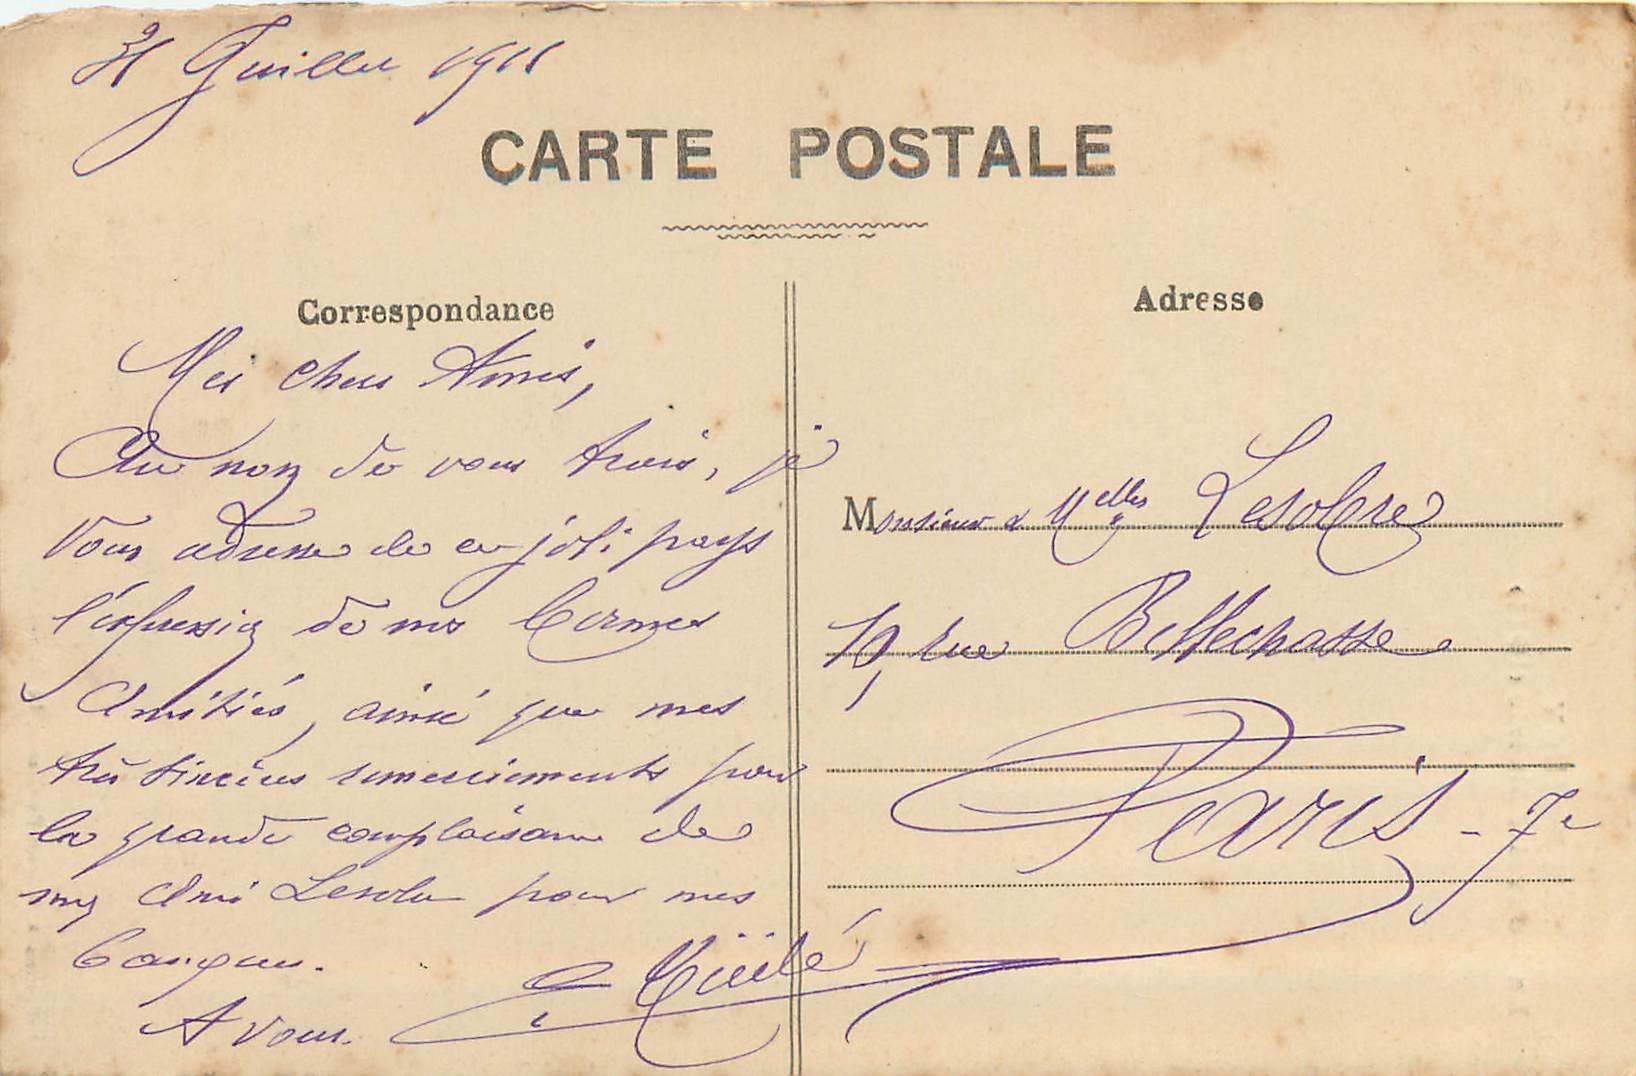 31 Juillet 1911
CARTE POSTALE
Correspondance
Adresse
Mes chers Amis,
Au nom de nous trois, je
vous adresse de ce joli pays
l'expression de mes bonnes
Amitiés, ainsi que mes
très sincères remerciements pour
la grande complaisance de
mon Ami Lesobre pour mes
A vous.
Monsieur & Melles Lesobre
19, rue Bellechasse
Paris - 7e